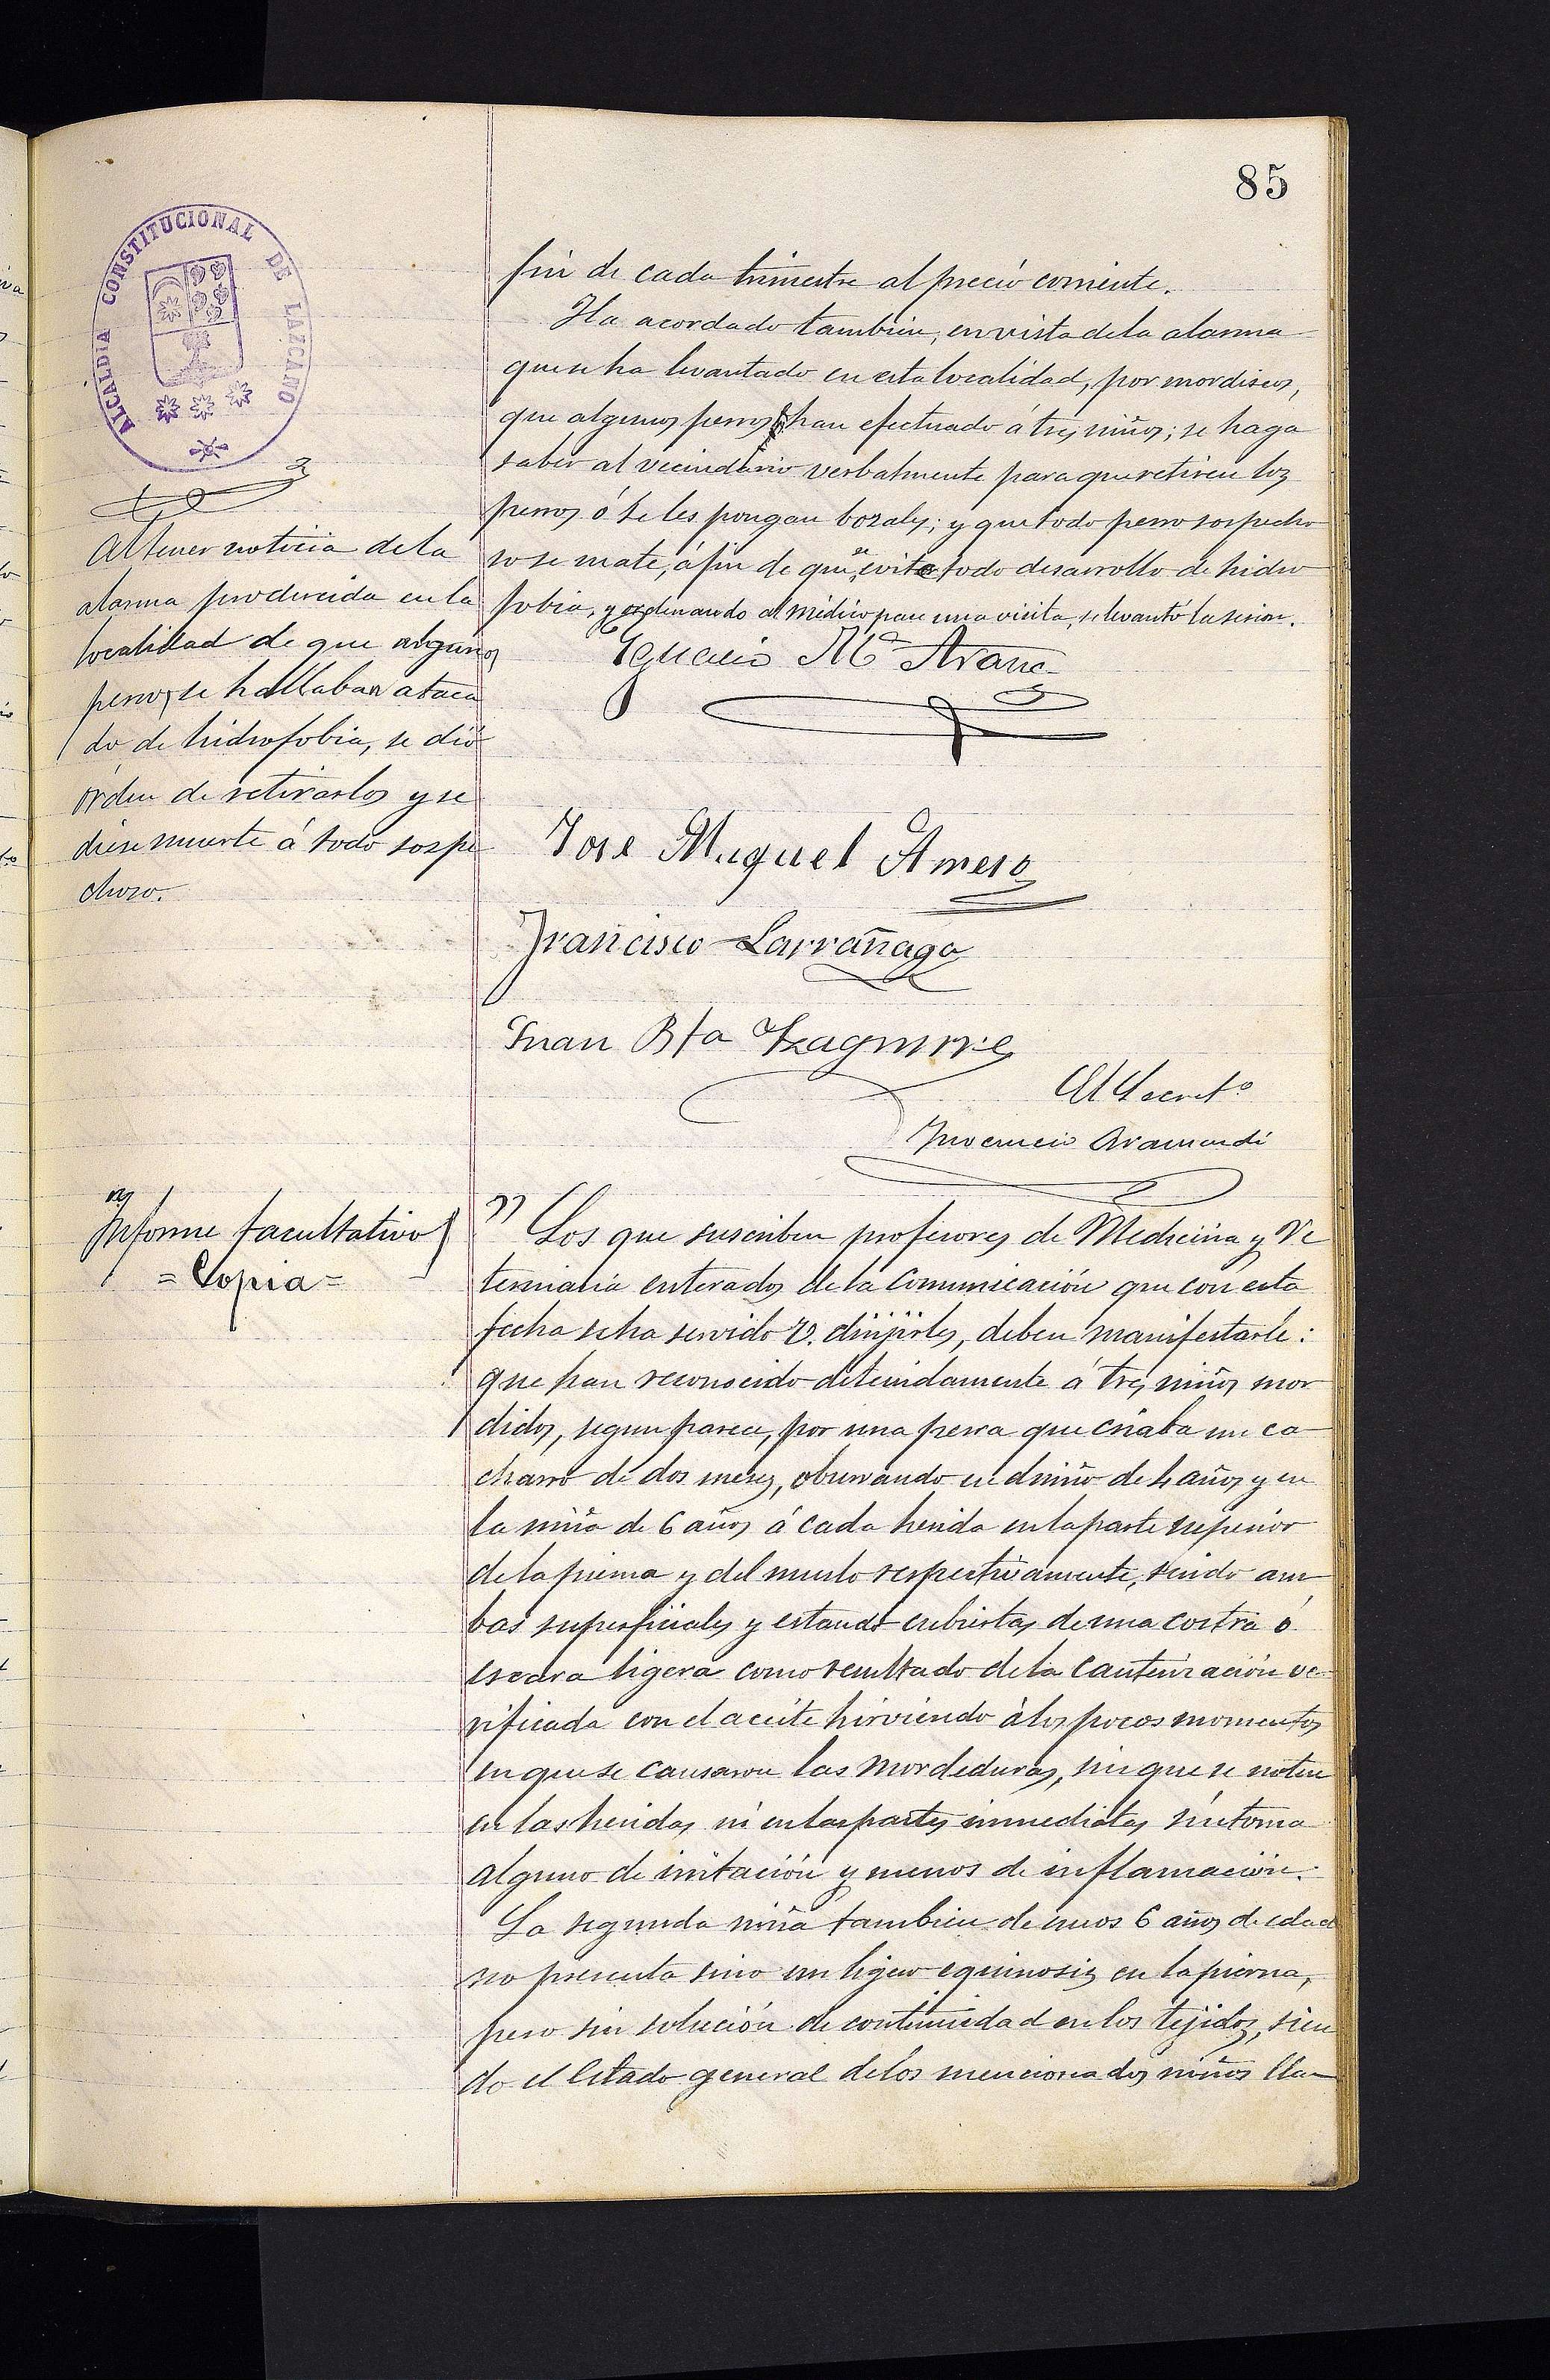 85
ALCALDIA CONSTITUCIONAL DE LAZCANO
fin de cada trimestre al precio corriente.
Ha acordado tambien, en vista de la alarma
que se ha levantado en esta localidad, por mordiscos,
que algunos perros han efectuado á tres niños; se haga
saber al vecindario verbalmente para que retiren los
perros ó se les pongan bozales; y que todo perro sospecho
so se mate, á fin de que se evite todo desarrollo de hidro
fobia, y ordenando al médico pase una visita, se levantó la sesion.
Al tener noticia de la
alarma producida en la
localidad de que algunos
perros se hallaban ataca
do de hidrofobia, se dió
órden de retirarlos y se
diese muerte á todo sospe
choso.
Ignacio Mª Arana
Jose Miguel Amero
Francisco Larrañaga
Juan Bta Yzaguirre
El Secretº
Inocencio Aramendi
Informe facultativo
= Copia =
Los que suscriben profesores de Medicina y Ve
terinaria enterados de la comunicación que con esta
fecha se ha servido V. dirijirles, deben manifestarle:
que han reconocido detenidamente á tres niños mor
didos, segun parece, por una perra que criaba un ca
charro de dos meses, observando en el niño de 4 años y en
la niña de 6 años á cada herida en la parte superior
de la pierna y del muslo respectivamente, siendo am
bas superficiales y estando cubiertas de una costra ó
escara ligera como resultado de la cauterización ve
rificada con el aceite hirviendo á los pocos momentos
en que se causaron las mordeduras, sin que se noten
en las heridas ni en las partes inmediatas síntoma
alguno de irritación y menos de inflamación.
La segunda niña tambien de unos 6 años de edad
no presenta sino un ligero equimosis en la pierna,
pero sin solución de continuidad en los tejidos, sien
do el Estado general de los mencionados niños lla-